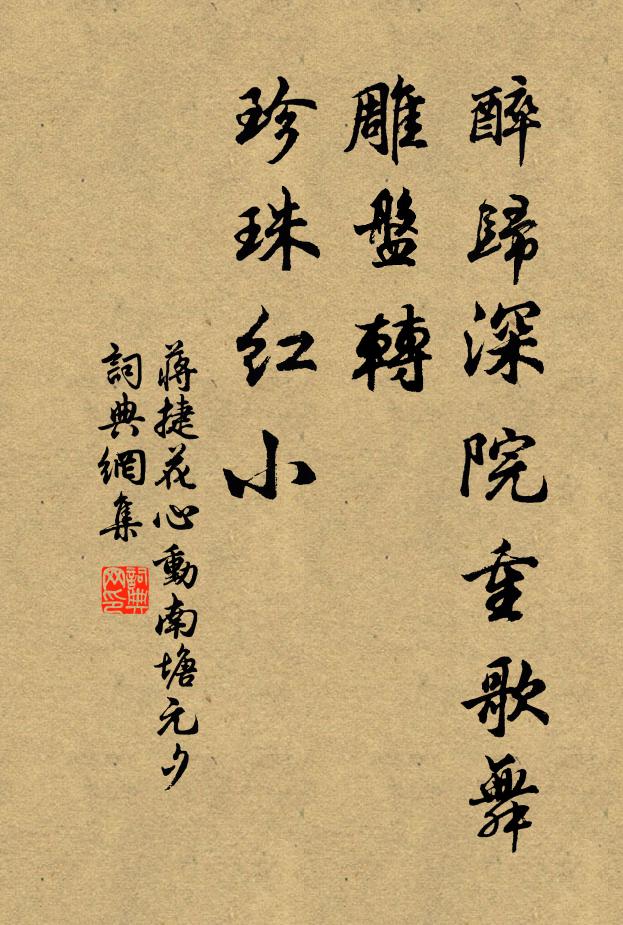 醉歸深院重歌舞
雕盤轉
珍珠紅小
蔣捷花心動南塘元夕
詞典網集
詞典
网印